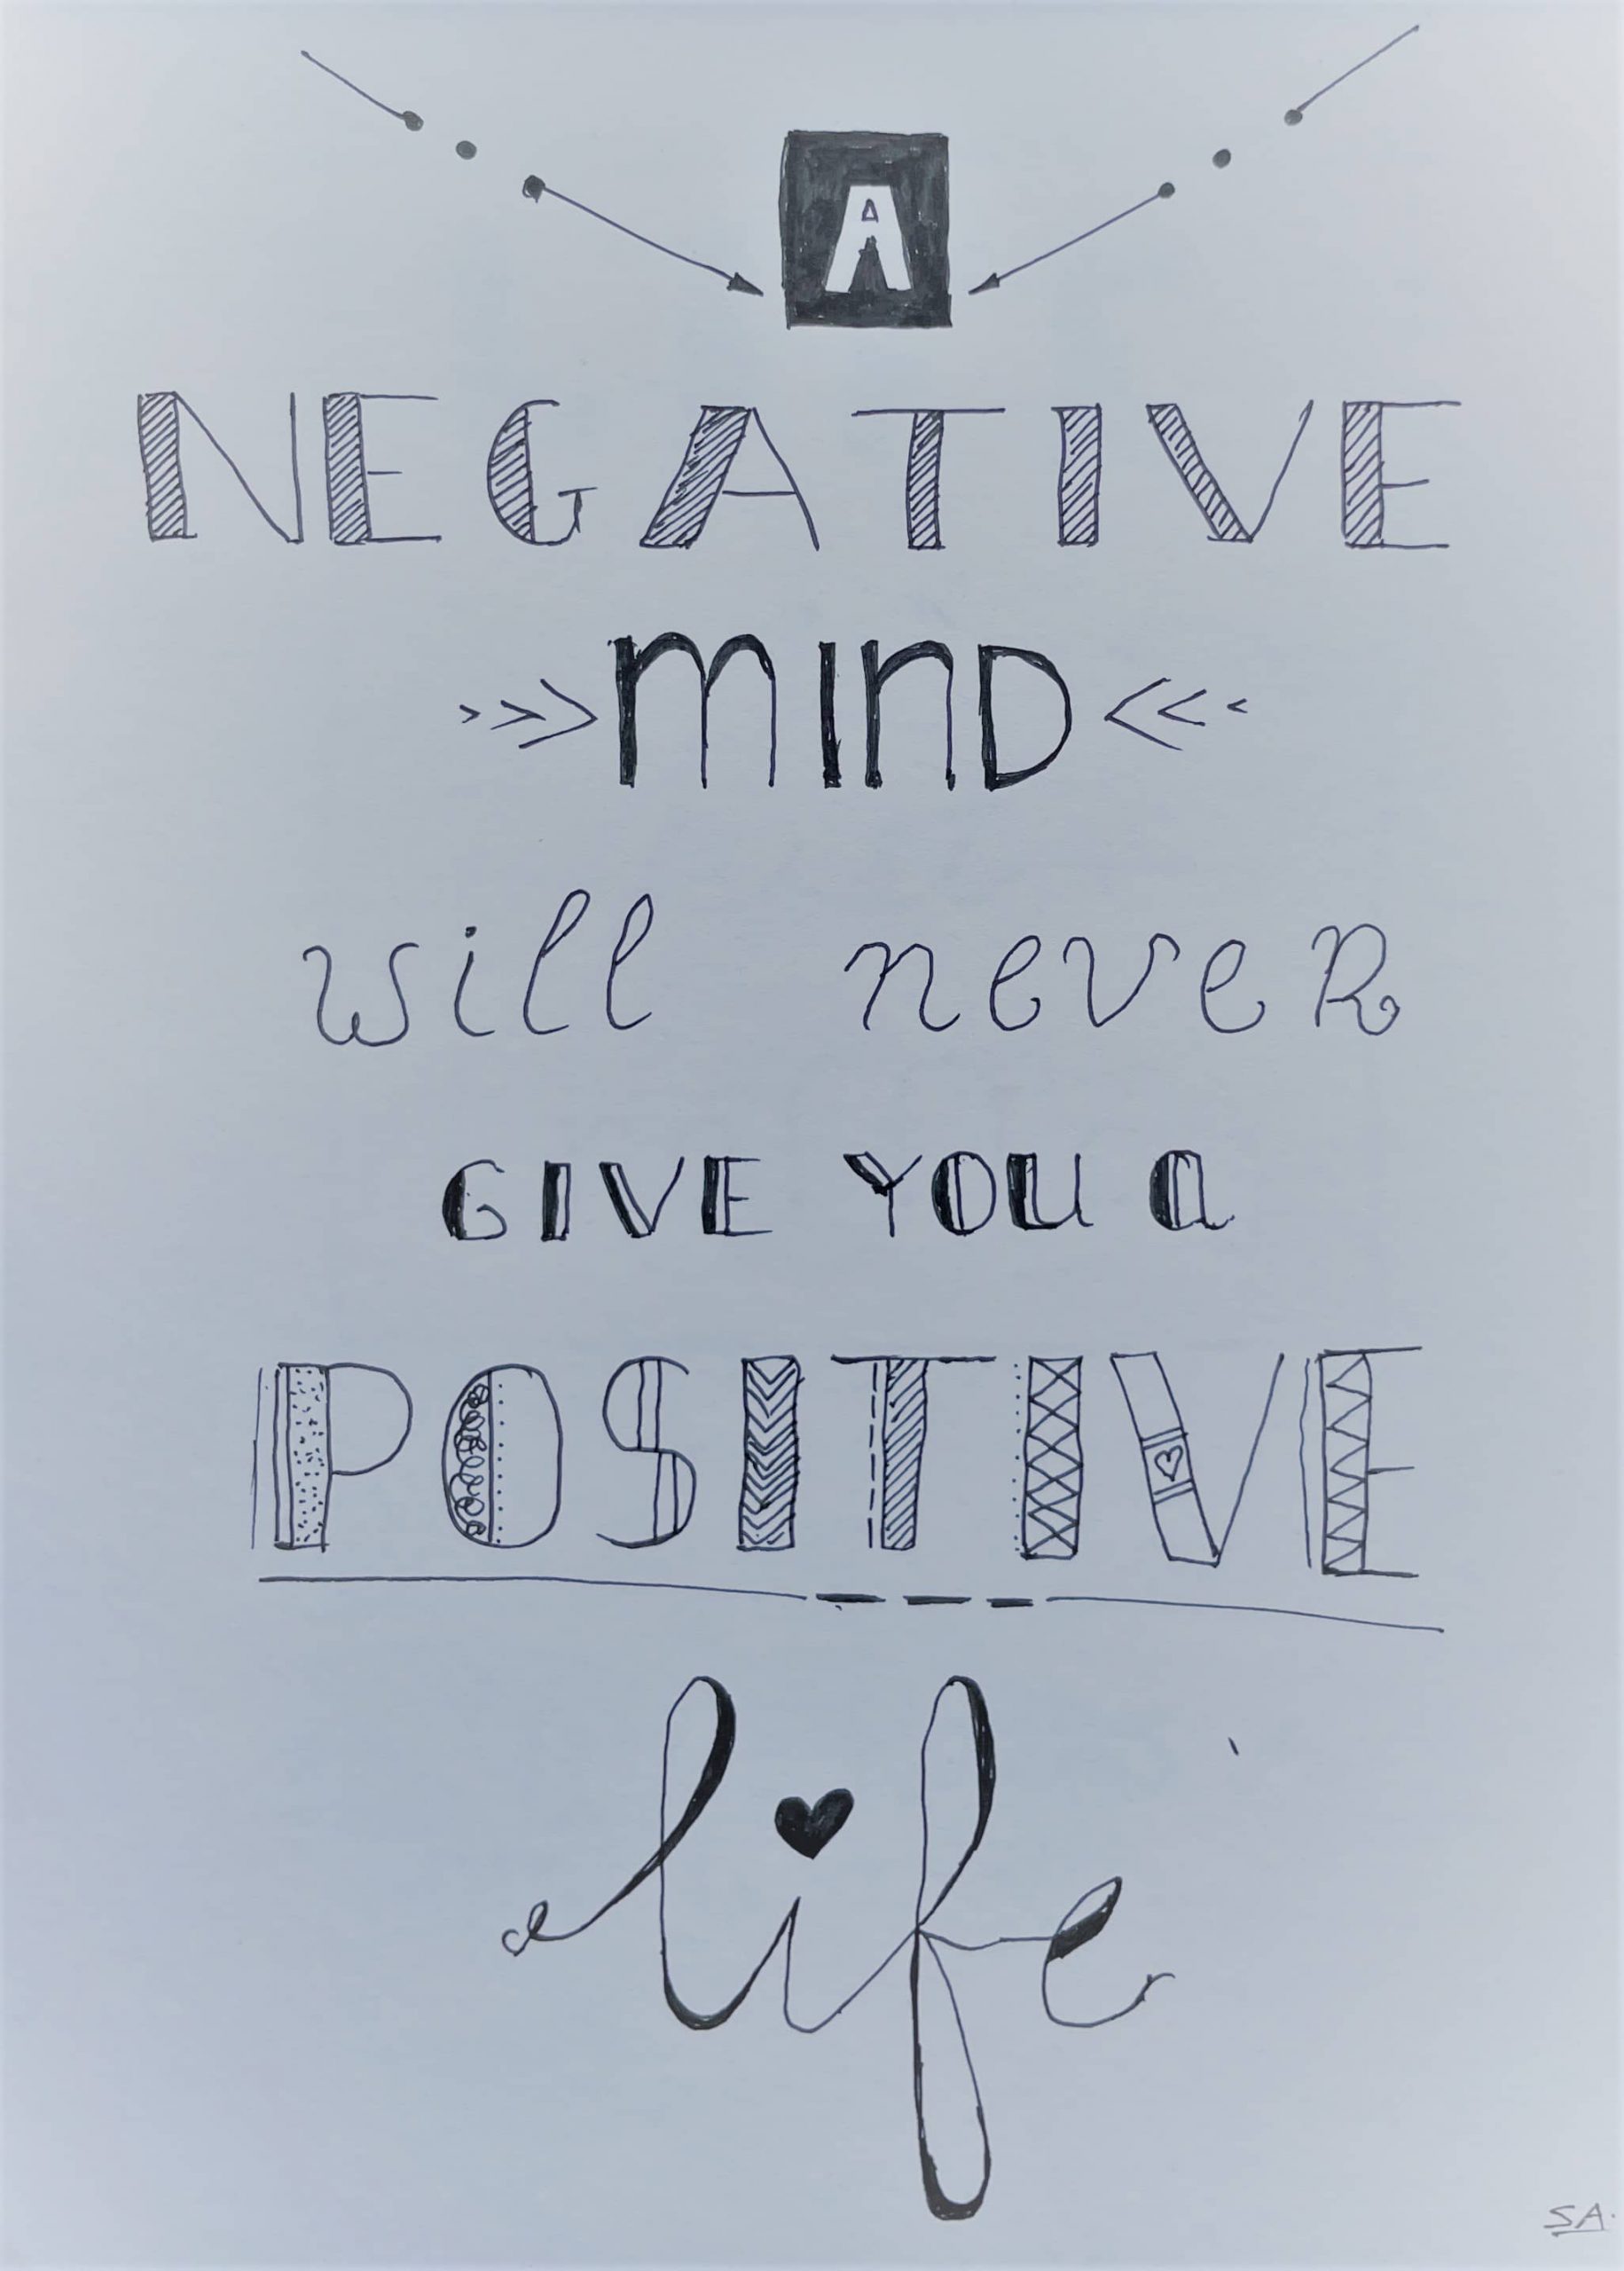 A
NEGATIVE
mInD
will never
GIVE YOU a
POSITIVE
life
SA.